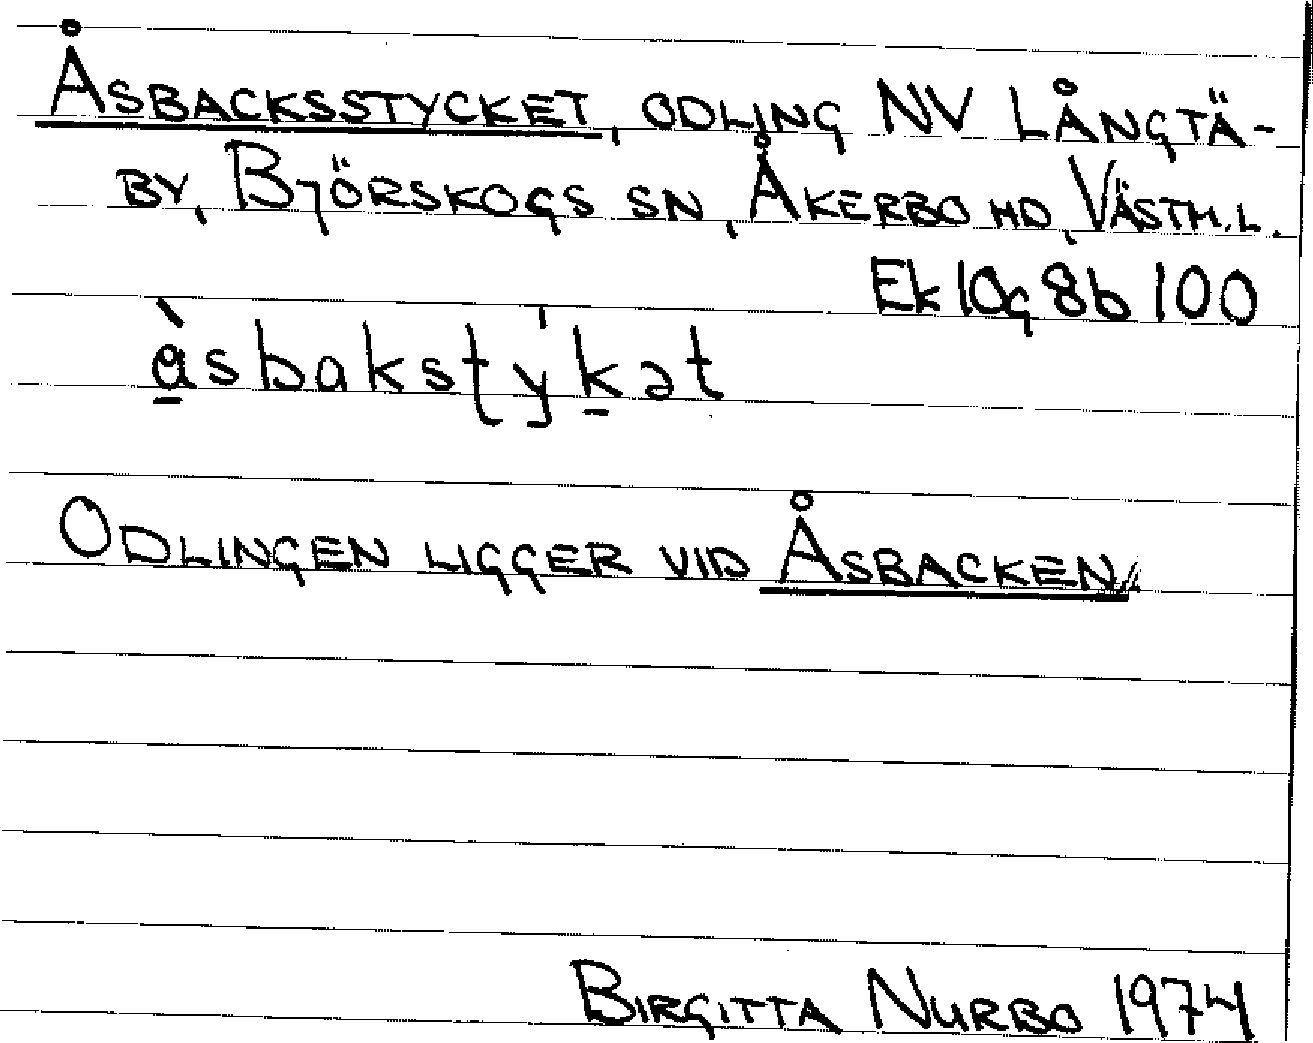 ÅSBACKSSTYCKET, ODLING NV LÅNGTÄ-
BY, BJÖRSKOGS SN, ÅKERBO HD, VÄSTM.L.
Ek 10g 8b 100
å̀sbakstykət
ODLINGEN LIGGER VID ÅSBACKEN.
BIRGITTA NURBO 1974